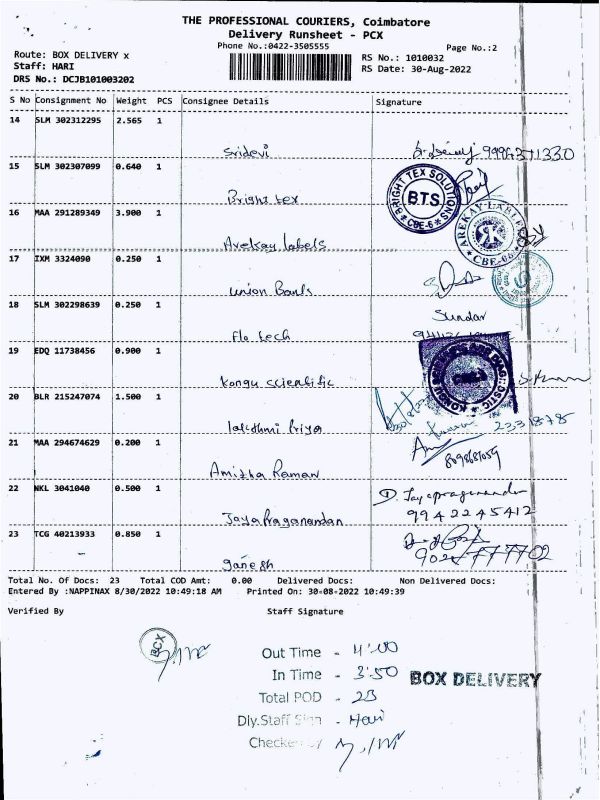 THE PROFESSIONAL COURIERS, Coimbatore
Delivery Runsheet - PCX
Phone No.:0422-3505555
Page No.:2
Route: BOX DELIVERY x
Staff: HARI
DRS No.: DCJB101003202
RS No.: 1010032
RS Date: 30-Aug-2022
S No Consignment No Weight PCS Consignee Details Signature
14 SLM 302312295 2.565 1
Sridevi 9994371330
15 SLM 302307099 0.640 1
Bright tex
BRIGHT TEX SOLUTIONS
B.T.S
CBE-6
16 MAA 291289349 3.900 1
Arekay Labels
AREKAY LABELS
CBE-06
17 IXM 3324090 0.250 1
Union Bank
18 SLM 302298639 0.250 1
Sundar
Flo tech
19 EDQ 11738456 0.900 1
Kongu scientific
20 BLR 215247074 1.500 1
lakshmi Priya 2331878
21 MAA 294674629 0.200 1
Amitha Raman 8098681059
22 NKL 3041040 0.500 1
D. Jayapraganandan
JayaPraganandan 9942245412
23 TCG 40213933 0.850 1
ganesh
Total No. Of Docs: 23 Total COD Amt: 0.00 Delivered Docs: Non Delivered Docs:
Entered By :NAPPINAX 8/30/2022 10:49:18 AM Printed On: 30-08-2022 10:49:39
Verified By Staff Signature
PCX
Out Time - 4:00
In Time - 3:50
BOX DELIVERY
Total POD - 23
Dly.Staff Sign - Hari
Checked By